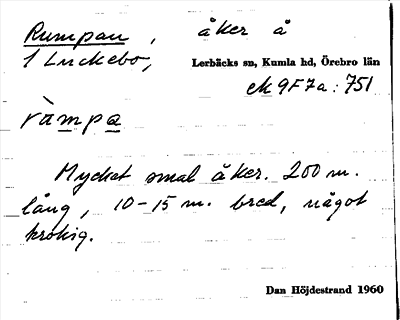 Rumpan, åker å
1 Luckebo,
Lerbäcks sn, Kumla hd, Örebro län
ek 9F7a: 751
ràmpa
Mycket smal åker. 200 m.
lång, 10-15 m. bred, något
krokig.
Dan Höjdestrand 1960